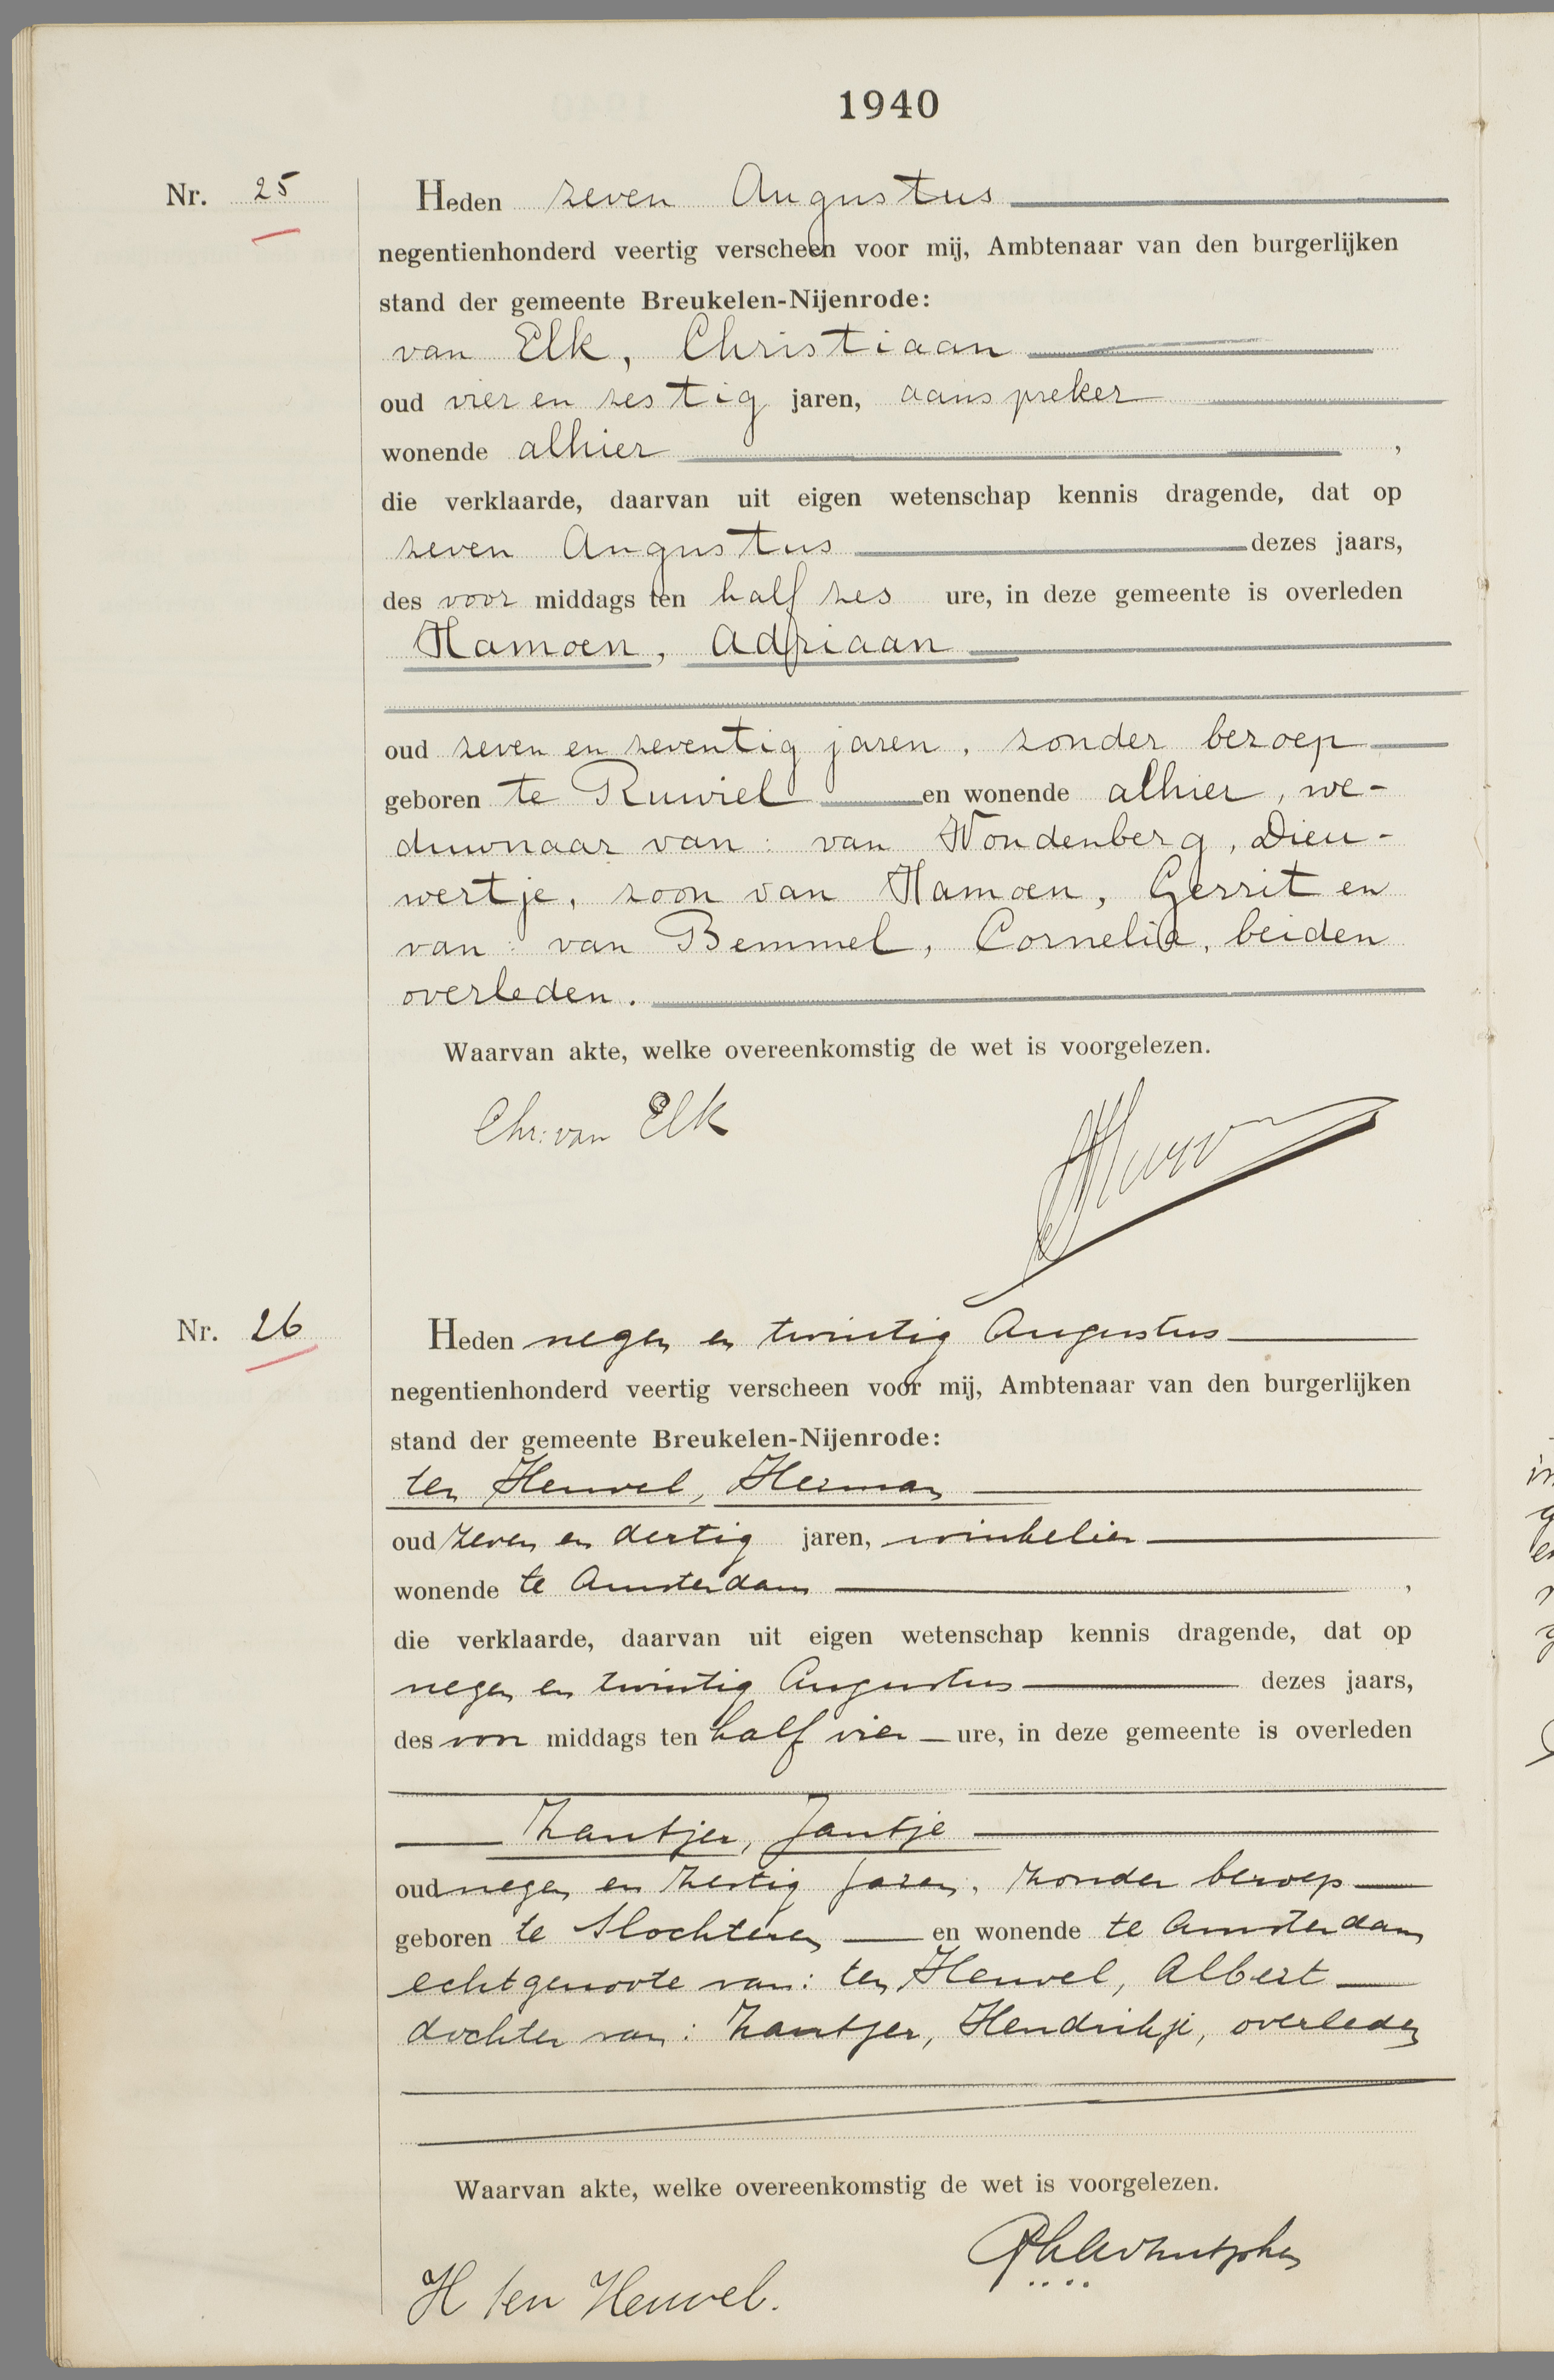 1940
Nr. 25
Heden zeven Augustus
negentienhonderd veertig verscheen voor mij, Ambtenaar van den burgerlijken
stand der gemeente Breukelen-Nijenrode:
van Elk, Christiaan
oud vier en zestig jaren, aanspreker
wonende alhier ,
die verklaarde, daarvan uit eigen wetenschap kennis dragende, dat op
zeven Augustus dezes jaars,
des voor middags ten half zes ure, in deze gemeente is overleden
Hamoen, Adriaan
oud zeven en zeventig jaren, zonder beroep
geboren te Ruwiel en wonende alhier, we-
duwnaar van: van Woudenberg, Dieu-
wertje, zoon van Hamoen, Gerrit en
van: van Bemmel, Cornelia, beiden
overleden.
Waarvan akte, welke overeenkomstig de wet is voorgelezen.
Chr: van Elk
Nr. 26
Heden negen en twintig Augustus
negentienhonderd veertig verscheen voor mij, Ambtenaar van den burgerlijken
stand der gemeente Breukelen-Nijenrode:
ten Heuvel, Herman
oud zeven en dertig jaren, winkelier
wonende te Amsterdam ,
die verklaarde, daarvan uit eigen wetenschap kennis dragende, dat op
negen en twintig Augustus dezes jaars,
des voor middags ten half vier ure, in deze gemeente is overleden
Zantjer, Jantje
oud negen en zestig jaren, zonder beroep
geboren te Slochteren en wonende te Amsterdam
echtgenoote van: ten Heuvel, Albert
dochter van: Zantjer, Hendrikje, overleden
Waarvan akte, welke overeenkomstig de wet is voorgelezen.
H ten Heuvel.